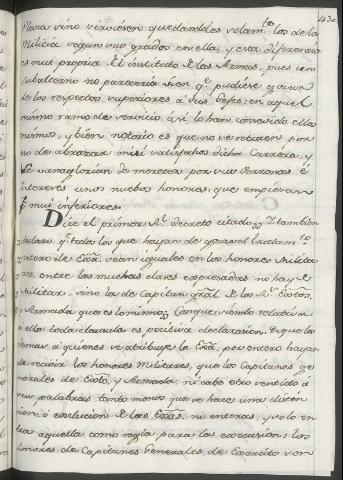 Plava vino verviesen quedandoles volam.te los de la
Milicia vegun vus grados en ella, y esta diferencia
es mui propria del instituto de las Armas, pues un
subalterno no pareceria vien q.e pudiese gozar
de los respectos superiores a sus Gefes: en aquel
mismo ramo de servicio asi lo han conocido ellos
mismos, y bien notorio es que no se retraen por
no de abrazar mui satisfechos dicha Carrera, y
se vanaglorian de merecer por sus Personas e
intereses unos nuebos honores, que empiezan
p.r mui inferiores.
Dice el primer R.l decreto citado y tambien
aclara q.e todos los que hayan de gozar el tratam.to
entero de Exa. vean iguales en los honores Milita
res, entre las muchas clases expresadas no hay de
Militar sino la de Capitan gral. de los R.s Extos.
y Armada que es lo mismo; Conque siendo relativa
a ella toda clausula es positiva declarasion de que los
demas a quienes se atribuye la Exa. por entero hayan
de recivir los honores Militares, que los Capitanes ge
nerales de Exto. y Armada, ni cabe otro sentido a
sus palabras, tanto menos que se hace una distin
cion, ó esclucion de las Exas. no enteras, y solo en
tra aquella como regla para la execusion: los
honores de Capitanes Generales de Exercito son